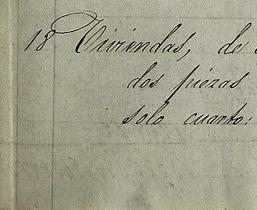 18 Viviendas, de
dos piezas
solo cuarto: